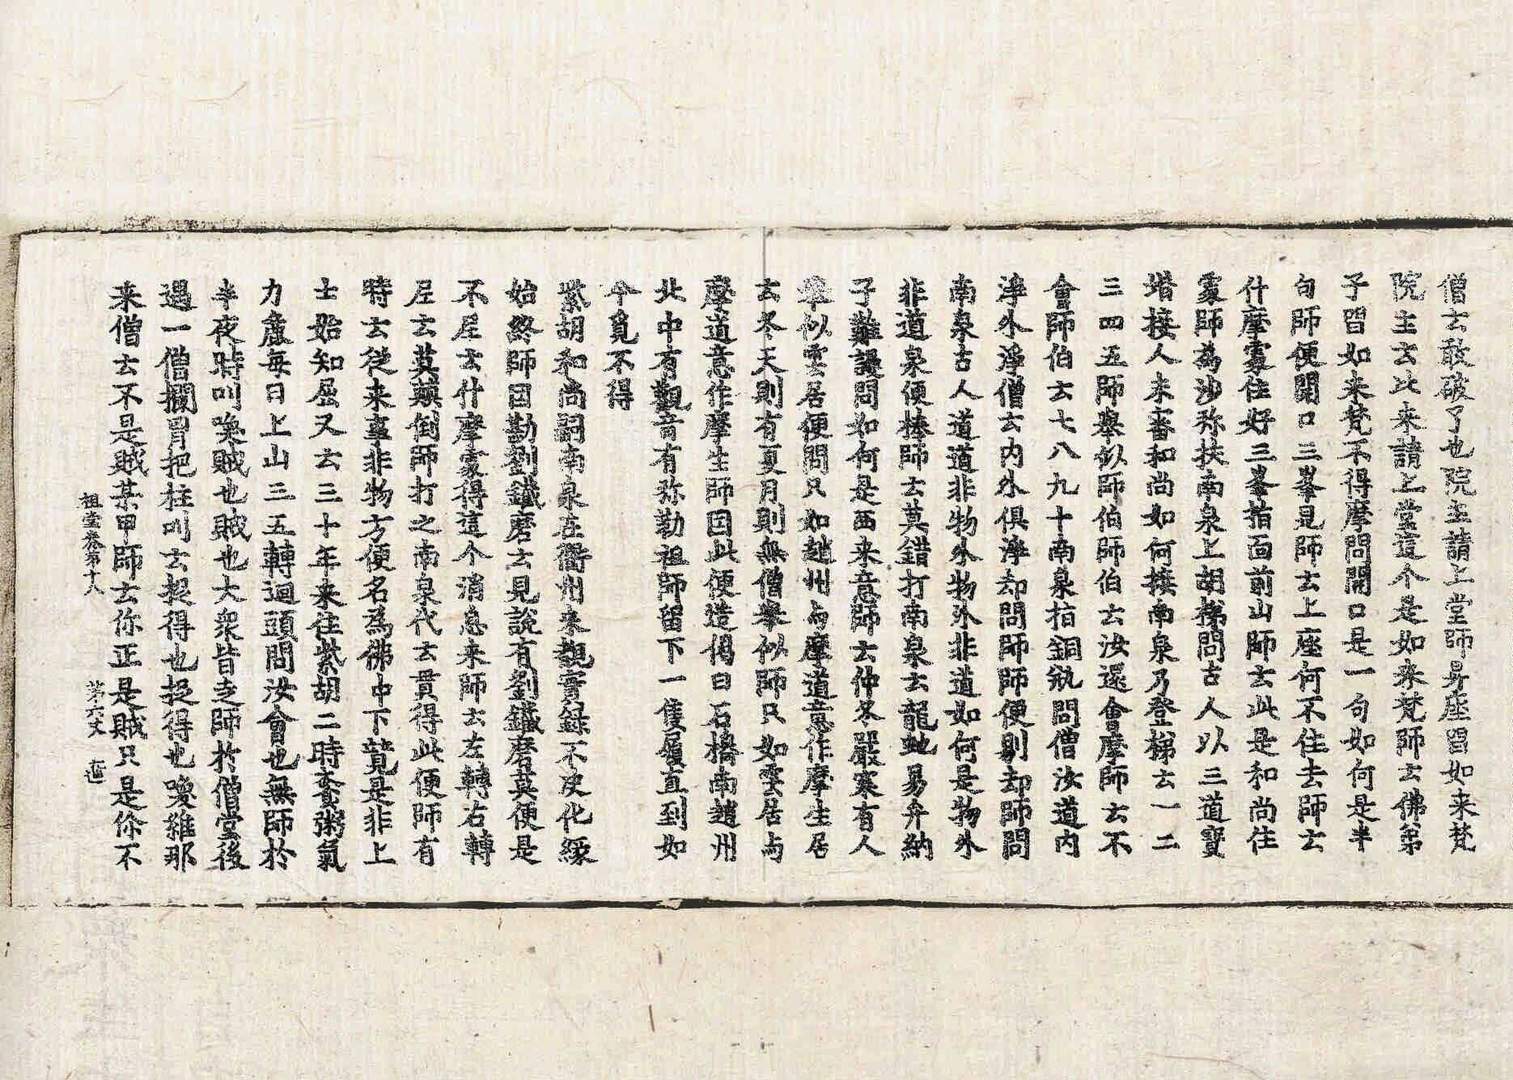 僧云敢破了也院主請上堂師昇座習如来梵
院主云比来請上堂這个是如来梵師云佛弟
子習如来梵不得摩問開口是一句如何是半
句師便開口三峯見師云上座何不住去師云
什摩處住好三峯指面前山師云此是和尚住
處師為沙弥扶南泉上胡梯問古人以三道寶
堦接人未審和尚如何接南泉乃登梯云一二
三四五師舉似師伯師伯云汝還會摩師云不
會師伯云七八九十南泉指銅瓶問僧汝道内
淨外淨僧云内外俱淨却問師師便剔却師問
南泉古人道道非物外物外非道如何是物外
非道泉便棒師云莫錯打南泉云龍虵易弁納
子難謾問如何是西来意師云仲冬嚴寒有人
舉似雲居便問只如趙州与摩道意作摩生居
云冬天則有夏月則無僧舉似師只如雲居与
摩道意作摩生師因此便造偈曰石橋南趙州
北中有觀音有弥勒祖師留下一隻履直到如
今覓不得
紫胡和尚嗣南泉在衢州未覩實録不决化緣
始終師因勘劉鐵磨云見說有劉鐵磨莫便是
不尼云什摩處得這个消息来師云左轉右轉
尼云莫顛倒師打之南泉代云貫得此便師有
時云從来事非物方便名為佛中下競是非上
士始知屈又云三十年来住紫胡二時齋粥氣
力麁每日上山三五轉迴頭問汝會也無師於
半夜時叫喚賊也賊也大衆皆走師於僧堂後
遇一僧攔胷把柱叫云捉得也捉得也喚維那
来僧云不是賊某甲師云你正是賊只是你不
祖堂卷第十八 第六丈